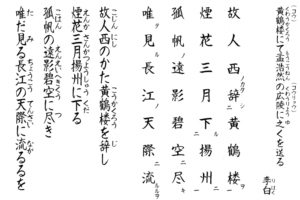 黄鶴楼にて孟浩然の広陵に之くを送る
李白
故人西ノカタ辞シ黄鶴楼ヲ
煙花三月下ル揚州ニ
孤帆ノ遠影碧空ニ尽キ
唯ダ見ル長江ノ天際ニ流ルルヲ
故人西のかた黄鶴楼を辞し
煙花三月揚州に下る
孤帆の遠影碧空に尽き
唯だ見る長江の天際に流るるを